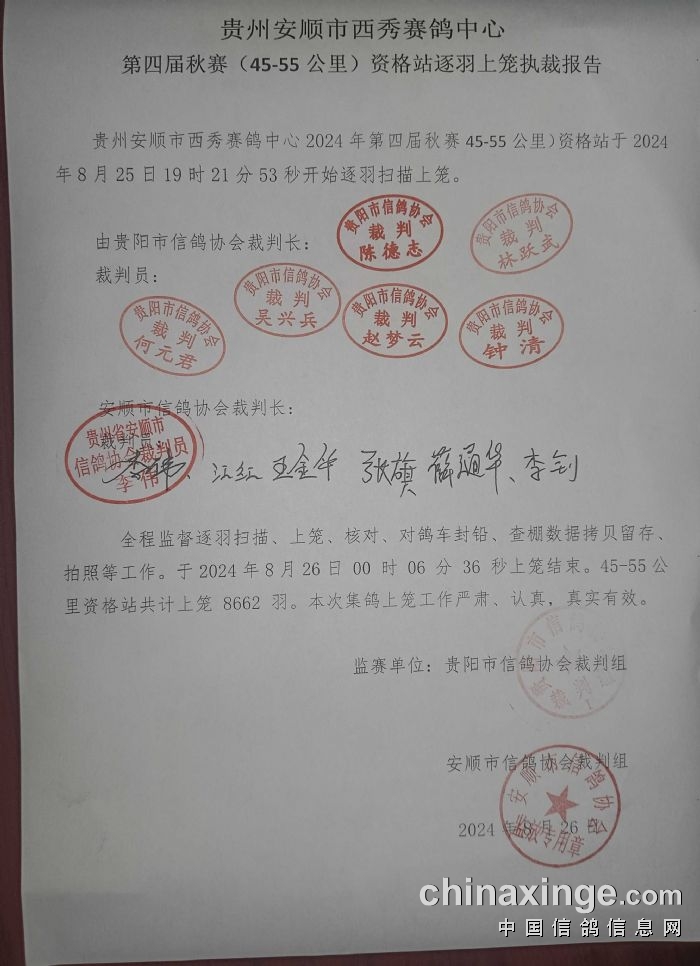 贵州安顺市西秀赛鸽中心
第四届秋赛（45-55公里）资格站逐羽上笼执裁报告
贵州安顺市西秀赛鸽中心2024年第四届秋赛45-55公里）资格站于2024
年8月25日19时21分53秒开始逐羽扫描上笼。
贵阳市信鸽协会
裁判
陈德志
贵阳市信鸽协会
裁判
林跃武
由贵阳市信鸽协会裁判长：
裁判员：
贵阳市信鸽协会
裁判
何元君
贵阳市信鸽协会
裁判
吴兴兵
贵阳市信鸽协会
裁判
赵梦云
贵阳市信鸽协会
裁判
钟清
安顺市信鸽协会裁判长：
裁判员：
贵州省安顺市
信鸽协会裁判员
李伟
李伟、江红 王金华 张旗 薛通华、李钊
全程监督逐羽扫描、上笼、核对、对鸽车封铅、查棚数据拷贝留存、
拍照等工作。于2024年8月26日00时06分36秒上笼结束。45-55公
里资格站共计上笼8662羽。本次集鸽上笼工作严肃、认真，真实有效。
监赛单位：贵阳市信鸽协会裁判组
安顺市信鸽协会裁判组
安顺市信鸽协会
监放专用章
2024年8月26日
chinaxinge.com
中国信鸽信息网